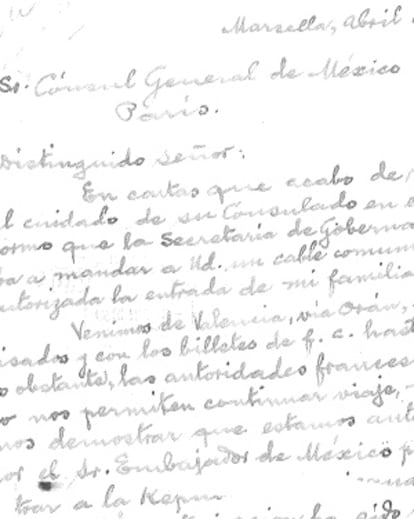 Marsella, Abril
Sr. Cónsul General de México
París.
Distinguido señor:
En cartas que acabo de
l cuidado de su Consulado en e
ormo que la Secretaría de Goberna
ba a mandar a Ud. un cable comun
autorizada la entrada de mi familia
Venimos de Valencia, vía Orán,
isados y con los billetes de f. c. hast
o obstante, las autoridades frances
o nos permiten continuar viaje,
mos demostrar que estamos auto
or el Sr. Embajador de México p
trar a la